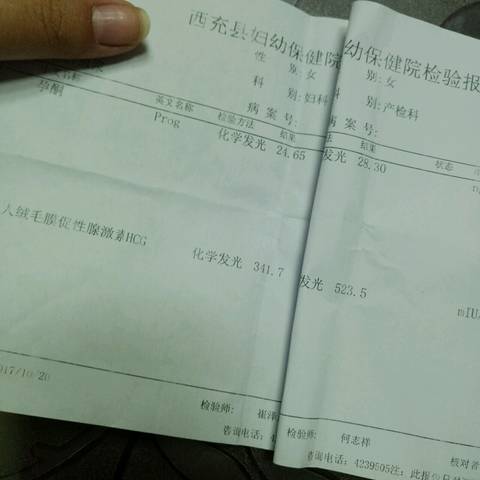 西充县妇幼保健院
性 别:女
科 别:妇科
病 案 号:
英文名称 检验方法 结果
孕酮 Prog 化学发光 24.65
人绒毛膜促性腺激素HCG 化学发光 341.7
2017/10/20
检验师:
咨询电话:
幼保健院检验报
别:女
别:产检科
病 案 号:
结果 状态
发光 28.30
发光 523.5 mIU
检验师: 何志祥 核对者
咨询电话: 4239505注: 此报告